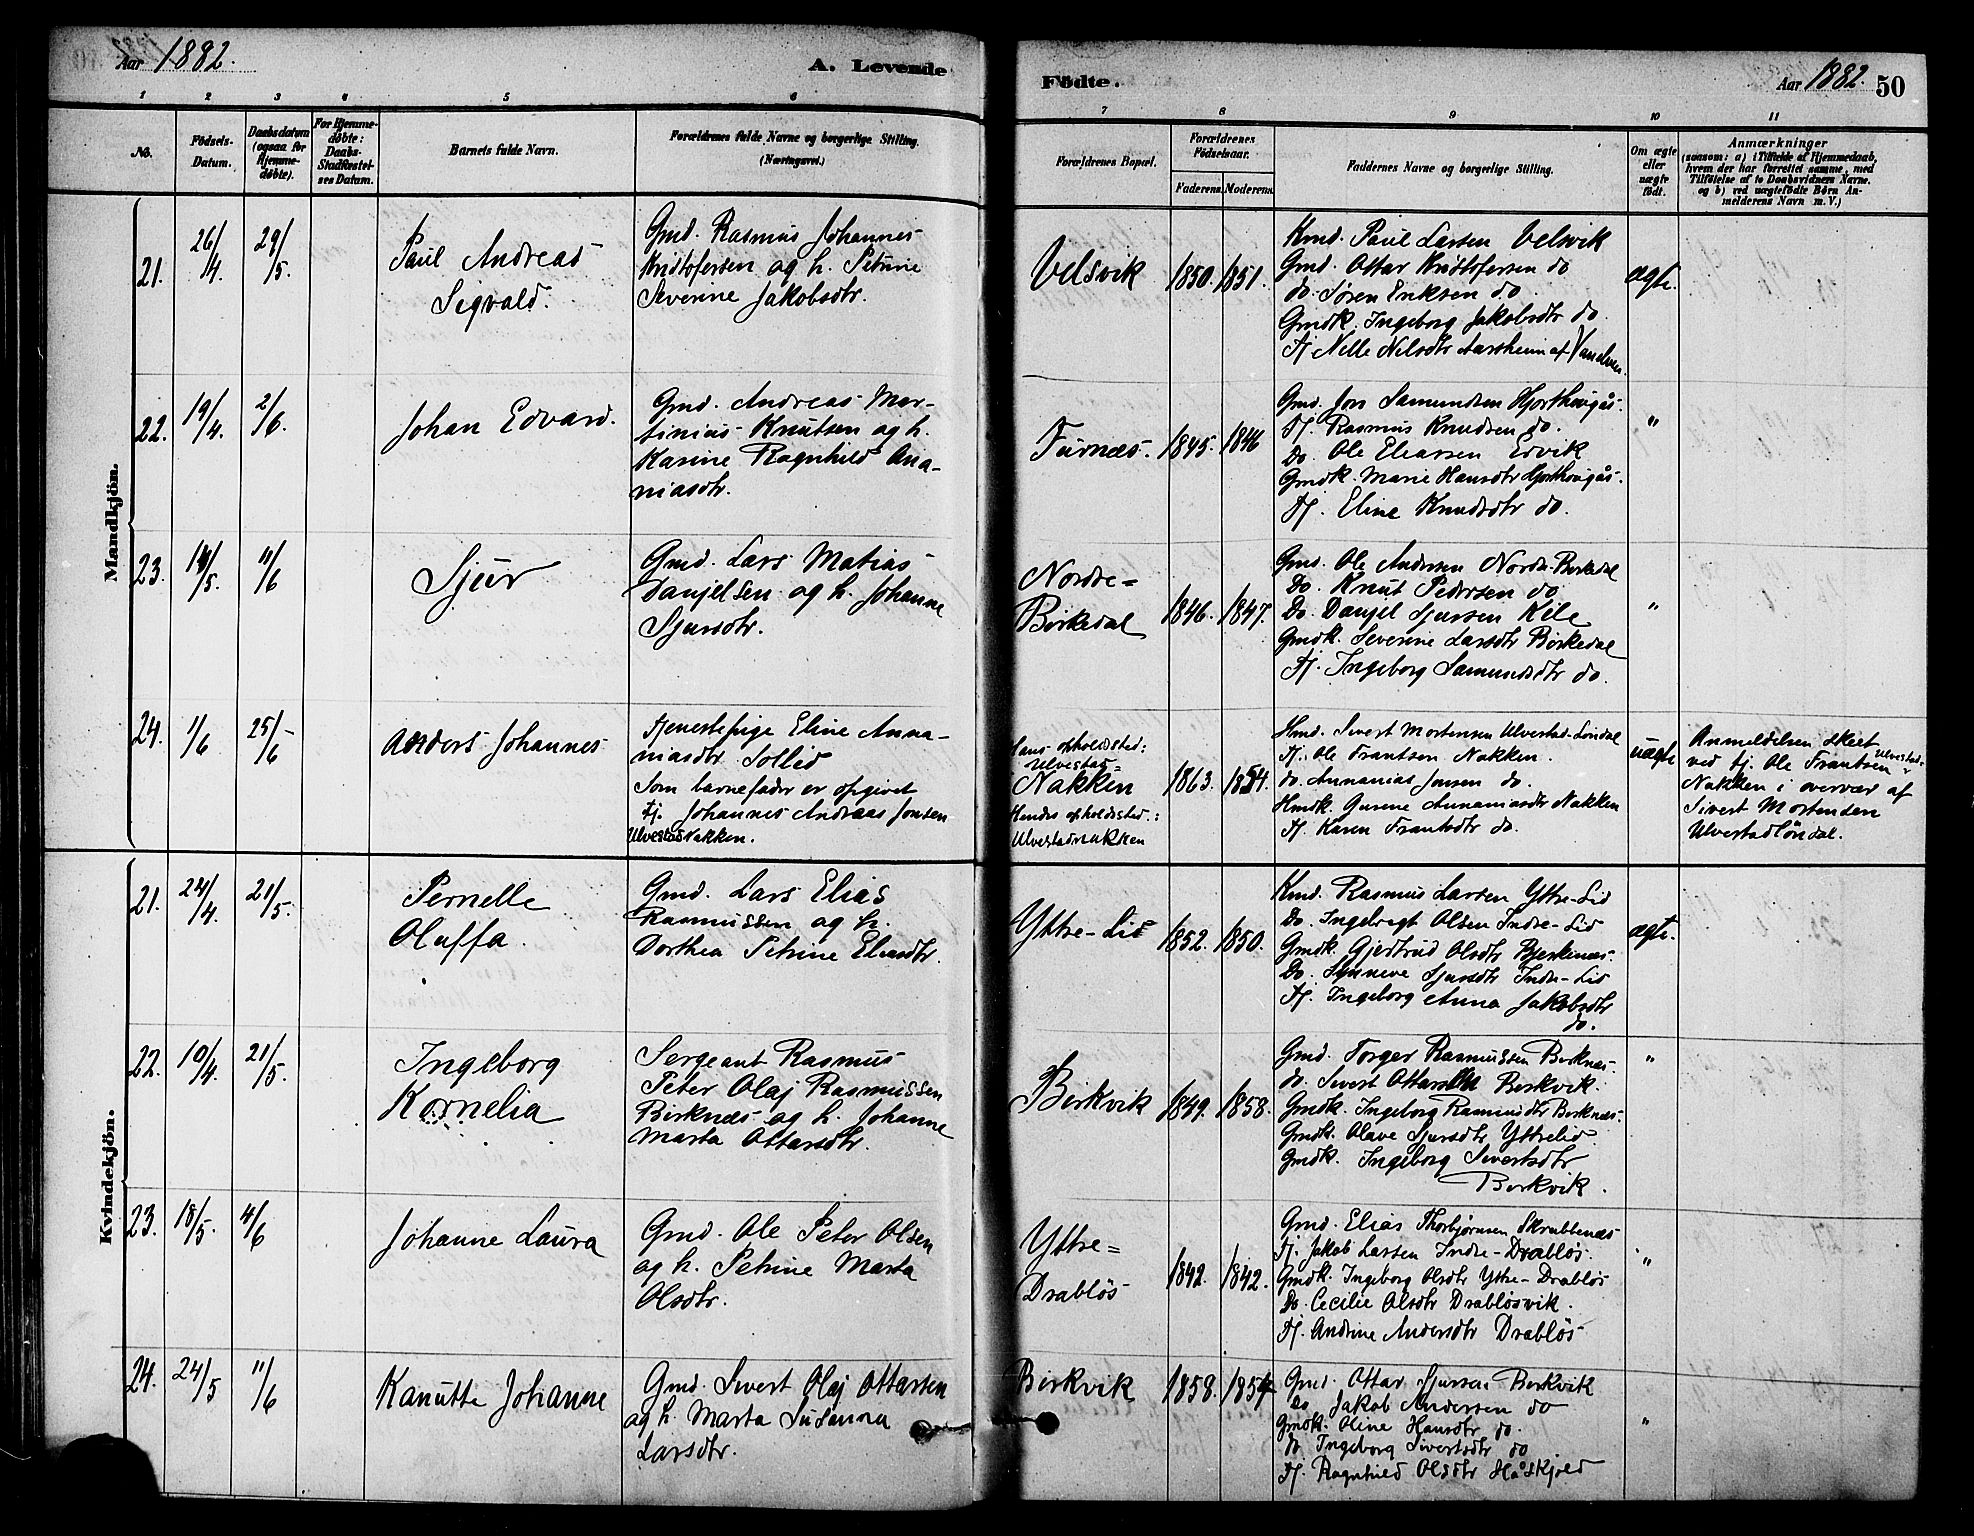 Aar 1882.
A. Levende
Fødte.
Aar 1882.
50
1 2 3 4 5 6 7 8 9 10 11
No.
Fødsels-Datum.
Daabsdatum (ogsaa for Hjemme-døbte).
For Hjemme-døbte: Daabs-Stadfæstel-ses Datum.
Barnets fulde Navn.
Forældrenes fulde Navne og borgerlige Stilling.
(Næringsvei.)
Forældrenes Bopæl.
Forældrenes Fødselsaar.
Faderens.
Moderens.
Faddernes Navne og borgerlige Stilling.
Om ægte eller uægte født.
Anmærkninger
(saasom: a) i Tilfælde af Hjemmedaab, hvem der har forrettet samme, med Tilføielse af to Daabsvidners Navne. og b) ved uægtefødte Børn Anmelderens Navn m. V.)
Mandkjön.
21. 26/4. 29/5.
Paul Andreas
Sigvald.
Gmd. Rasmus Johannes
Kristofersen og h. Petrine
Severine Jakobsdtr.
Velsvik 1850. 1851.
Kmd. Paul Larsen Velsvik
Gmd. Ottar Kristofersen do
do. Søren Eriksen do.
Gmdk. Ingeborg Jakobsdtr do.
Tj. Nelle Nilsdtr Aarsheim af Vandven.
ægte.
22. 19/4. 2/6.
Johan Edvard.
Gmd. Andreas Mar-
tinius Knutsen og h.
Karine Ragnhild Ana-
niasdtr.
Furnæs. 1845. 1846
Gmd. Jon Samundsen Hjorthaugås.
Tj. Rasmus Knudsen do.
Do. Ole Eliassen Ervik
Gmdk. Marie Hansdtr Hjorthaugås.
Tj. Eline Knudsdtr do.
"
23. /5. 11/6
Sjur
Gmd. Lars Matias
Danjelsen og h. Johanne
Sjursdtr.
Nordre=
Birkedal 1846. 1847.
Gmd. Ole Andersen Nordre-Birkedal
Do. Knut Pedersen do
Do. Danjel Sjursen Kile
Gmdk. Severine Larsdtr Birkedal
Tj. Ingeborg Samundsdtr do.
"
24. 1/6 25/6
Anders Johannes
Tjenestepige Eline Anna-
niasdtr Sollid
Som barnefader er opgivet
Tj. Johannes Andreas Jonsen
Ulvestad Nakken.
Hans opholdsted:
Ulvestad=
Nakken 1863. 1854.
Hendes opholdssted:
Ulvestadnakken
Hmd. Sivert Mortensen Ulvestad-Løndal
Tj. Ole Frantsen Nakken.
do. Annanias Jonsen do.
Hmdk. Gurine Annaniasdtr Nakken
Tj. Karen Frantsdtr do.
uægte
Anmeldelsen skeet
ved Tj. Ole Frantsen Ulvestad-
Nakken i overvær af
Sivert Mortensen
Ulvestadløndal.
Kvindekjön.
21. 24/4. 21/5.
Pernelle
Oluffa.
Gmd. Lars Elias
Rasmussen og h.
Dorthea Petrine Eliasdtr.
Yttre-Lid 1852. 1850.
Kmd. Rasmus Larsen Yttre-Lid
Do. Ingebrigt Olsen Indre-Lid
Gmdk. Gjertrud Olsdtr Bjerkenæs.
Do. Synneve Sjursdtr Indre-Lid
Tj. Ingeborg Anna Jakobsdtr
do.
ægte.
22. 10/4. 21/5.
Ingeborg
Kornelia
Sergeant Rasmus
Peter Olaj Rasmussen
Birknæs og h. Johanne
Marta Ottarsdtr.
Birkvik 1849. 1858.
Gmd. Torger Rasmussen Birknæs.
do. Sivert Ottarsen Birkvik.
Gmdk. Ingeborg Rasmusdtr Birknæs.
Gmdk. Olave Sjursdtr Yttrelid.
Gmdk. Ingeborg Sivertsdtr
Birkvik.
"
23. 18/5. 4/6
Johanne Laura
Gmd. Ole Peter Olsen
og h. Petrine Marta
Olsdtr.
Yttre=
Drabløs 1842. 1842.
Gmd. Elias Thorbjørnsen Skrubbenæs
Tj. Jakob Larsen Indre-Drabløs.
Gmdk. Ingeborg Olsdtr Yttre-Drabløs
Do. Cecilie Olsdtr Drabløsvik.
Tj. Andrine Andersdtr Drabløs
"
24. 24/5 11/6
Kanutte Johanne
Gmd. Sivert Olaj Ottarsen
og h. Marta Susanna
Larsdtr.
Birkvik 1858. 1854
Gmd. Ottar Sjursen Birkvik
Do. Jakob Andersen do
Gmdk. Oline Hansdtr do.
do. Ingeborg Sivertsdtr do
Tj. Ragnhild Olsdtr Håskjold
"